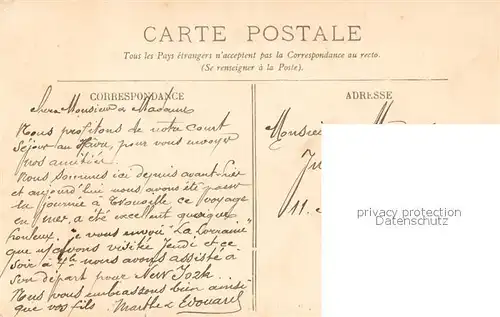 CARTE POSTALE
Tous les Pays étrangers n'acceptent pas la Correspondance au recto.
(Se renseigner à la Poste).
CORRESPONDANCE
ADRESSE
Chers Monsieur & Madame
Nous profitons de notre court
Séjour au Hâvre, pour vous envoyer
nos amitiés.
Nous sommes ici depuis avant-hier
et aujourd'hui nous avons été passer
la journée à Trouville ce voyage
en mer, a été excellent quoique
houleux. je vous envoie "La Lorraine"
que n/ avons visitée Jeudi et ce
soir à 4h nous avons assisté à
son départ pour New York..
Nous vous embrassons bien ainsi
que vos fils. Marthe & Edouard
Monsieur
11.
privacy protection
Datenschutz